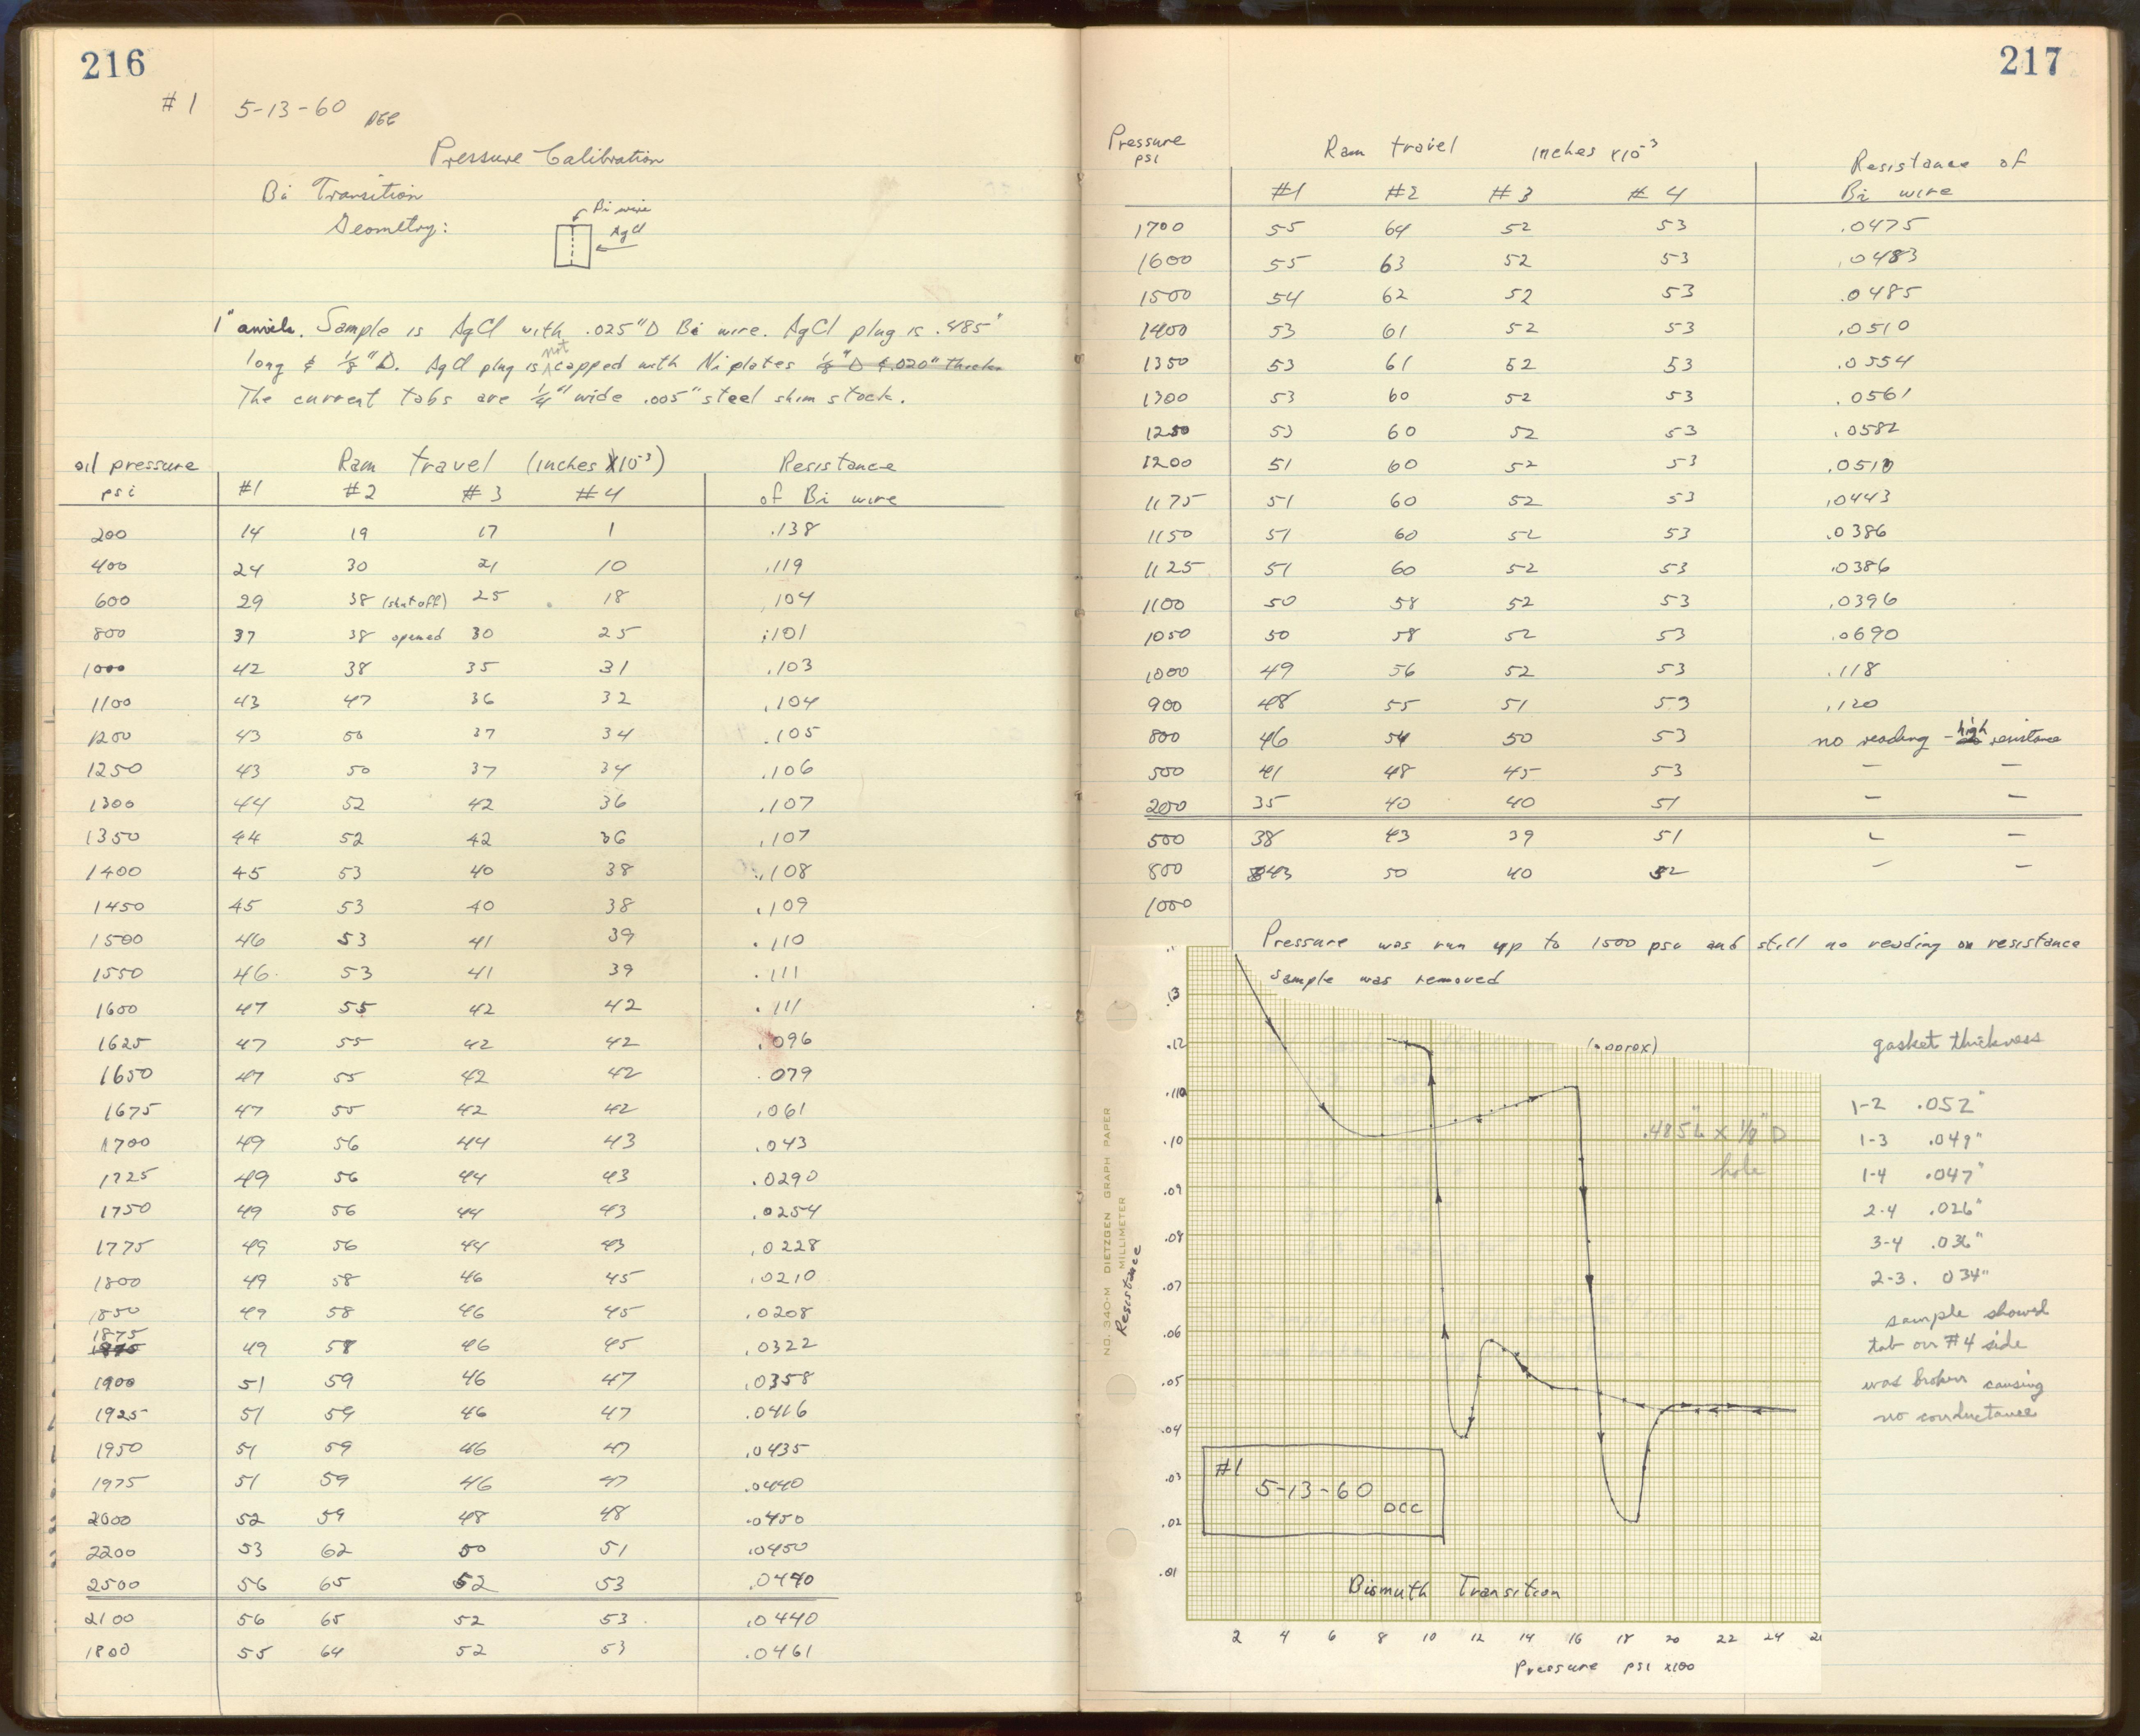 216
#1 5-13-60
Pressure Calibration
Bi Transition
Geometry:
Bi wire
AgCl
1" anvils. Sample is AgCl with .025"D Bi wire. AgCl plug is .485"
long & 1/8"D. AgCl plug is not capped with Ni plates 1/8"D & .020" thick
The current tabs are 1/4" wide .005" steel shim stock.
oil pressure Ram travel (inches X10-3) Resistance
psi #1 #2 #3 #4 of Bi wire
200 14 19 17 1 .138
400 24 30 21 10 .119
600 29 38 (shut off) 25 18 .104
800 37 38 opened 30 25 .101
1000 42 38 35 31 .103
1100 43 47 36 32 .104
1200 43 50 37 34 .105
1250 43 50 37 34 .106
1300 44 52 42 36 .107
1350 44 52 42 36 .107
1400 45 53 40 38 .108
1450 45 53 40 38 .109
1500 46 53 41 39 .110
1550 46 53 41 39 .111
1600 47 55 42 42 .111
1625 47 55 42 42 .096
1650 47 55 42 42 .079
1675 47 55 42 42 .061
1700 49 56 44 43 .043
1725 49 56 44 43 .0290
1750 49 56 44 43 .0254
1775 49 56 44 43 .0228
1800 49 58 46 45 .0210
1850 49 58 46 45 .0208
1875 49 58 46 45 .0322
1900 51 59 46 47 .0358
1925 51 59 46 47 .0416
1950 51 59 46 47 .0435
1975 51 59 46 47 .0440
2000 52 59 48 48 .0450
2200 53 62 50 51 .0450
2500 56 65 52 53 .0440
2100 56 65 52 53 .0440
1800 55 64 52 53 .0461
217
Pressure Ram travel inches x10-3 Resistance of
psi #1 #2 #3 #4 Bi wire
1700 55 64 52 53 .0475
1600 55 63 52 53 .0483
1500 54 62 52 53 .0485
1400 53 61 52 53 .0510
1350 53 61 52 53 .0554
1300 53 60 52 53 .0561
1250 53 60 52 53 .0582
1200 51 60 52 53 .0510
1175 51 60 52 53 .0443
1150 51 60 52 53 .0386
1125 51 60 52 53 .0386
1100 50 58 52 53 .0396
1050 50 58 52 53 .0690
1000 49 56 52 53 .118
900 48 55 51 53 .120
800 46 54 50 53 no reading - high resistance
500 41 48 45 53 — —
200 35 40 40 51 — —
500 38 43 39 51 — —
800 43 50 40 52 — —
1000
Pressure was run up to 1500 psi and still no reading on resistance
sample was removed
.13
.12
.110
.10
.09
.08
.07
.06
.05
.04
.03
.02
.01
(approx)
.485 L x 1/8" D
hole
NO. 340-M DIETZGEN GRAPH PAPER
MILLIMETER
Resistance
#1
5-13-60
DCC
Bismuth Transition
2 4 6 8 10 12 14 16 18 20 22 24
Pressure psi x100
gasket thickness
1-2 .052"
1-3 .049"
1-4 .047"
2-4 .026"
3-4 .036"
2-3 .034"
sample showed
tab on #4 side
was broken causing
no conductance